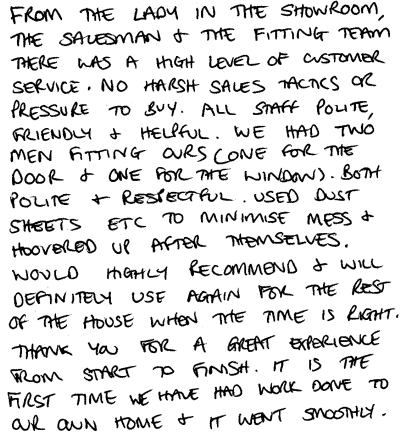 FROM THE LADY IN THE SHOWROOM,
THE SALESMAN & THE FITTING TEAM
THERE WAS A HIGH LEVEL OF CUSTOMER
SERVICE. NO HARSH SALES TACTICS OR
PRESSURE TO BUY. ALL STAFF POLITE,
FRIENDLY & HELPFUL. WE HAD TWO
MEN FITTING OURS (ONE FOR THE
DOOR & ONE FOR THE WINDOWS). BOTH
POLITE & RESPECTFUL. USED DUST
SHEETS ETC TO MINIMISE MESS &
HOOVERED UP AFTER THEMSELVES.
WOULD HIGHLY RECOMMEND & WILL
DEFINITELY USE AGAIN FOR THE REST
OF THE HOUSE WHEN THE TIME IS RIGHT.
THANK YOU FOR A GREAT EXPERIENCE
FROM START TO FINISH. IT IS THE
FIRST TIME WE HAVE HAD WORK DONE TO
OUR OWN HOME & IT WENT SMOOTHLY.